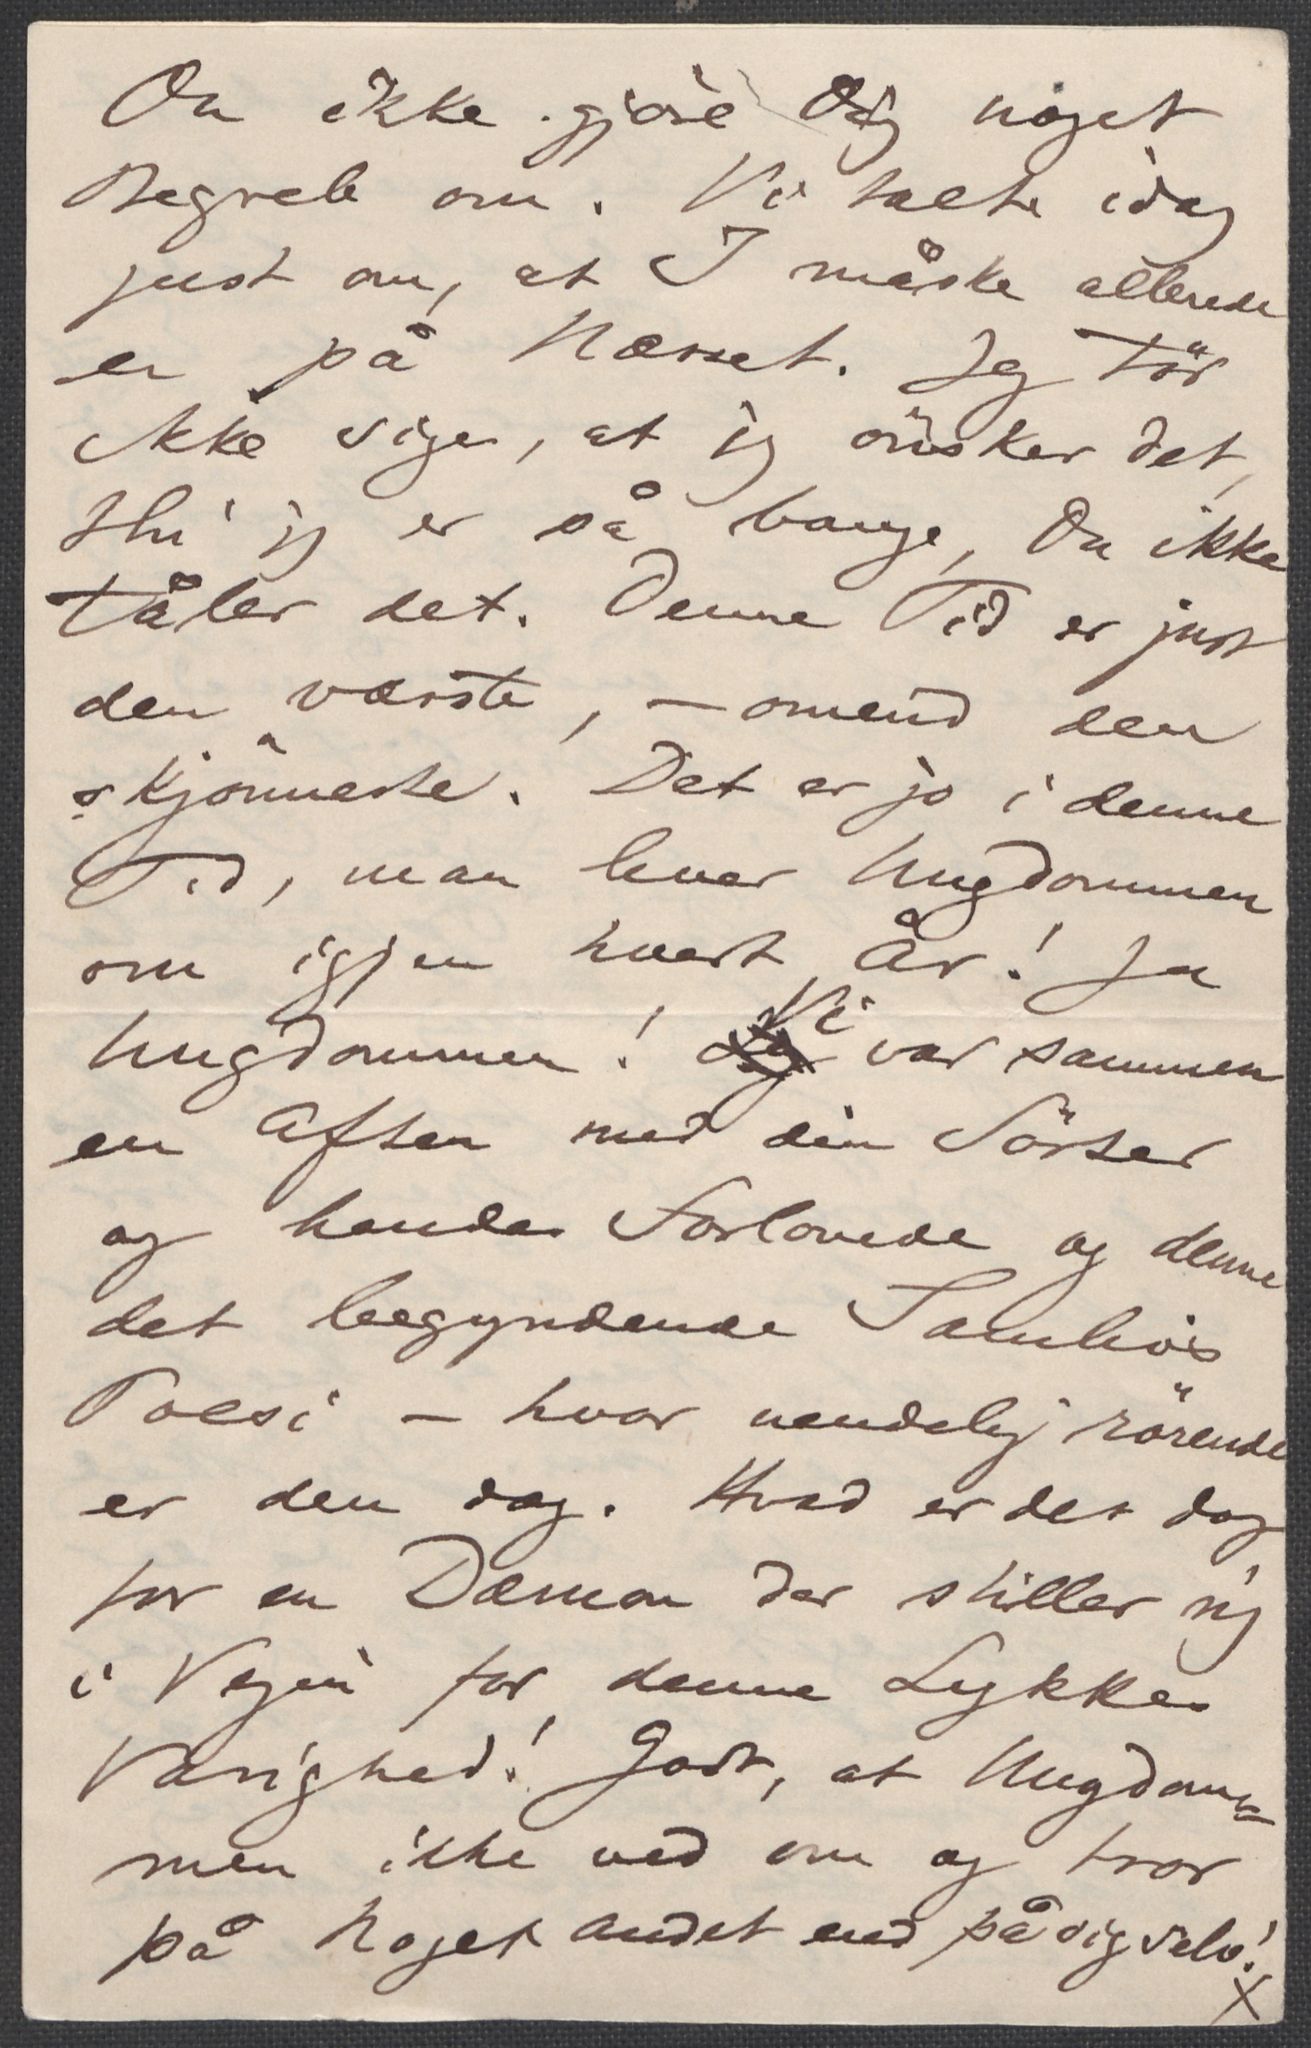 Du ikke gjöre Dig noget
Begreb om. Vi talte idag
just om, at I måske allerede
er på Næsset. Jeg tör
ikke sige, at jeg önsker det,
thi jeg er så bange, Du ikke
tåler det. Denne Tid er just
den værste, – omend den
skjönneste. Det er jo i denne
Tid, man lever Ungdommen
om igjen hvert År! Ja
Ungdommen! Vi var sammen
en Aften med din Söster
og hendes Forlovede og denne
det begyndende Samlivs
Poesi – hvor uendelig rörende
er den dog. Hvad er det dog
for en Dæmon der stiller sig
i Vejen for denne Lykkes
Varighed! Godt, at Ungdom=
men ikke ved om og tror
på Noget andet end på sig selv!
X